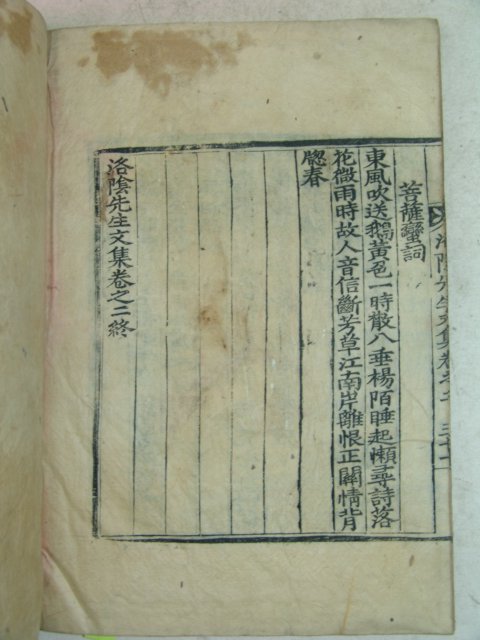 洛陰先生文集卷之二
菩薩蠻詞
東風吹送鵝黃色一時散入垂楊陌睡起懶尋詩落
花微雨時故人音信斷芳草江南岸離恨正關情背
牕春
洛陰先生文集卷之二終